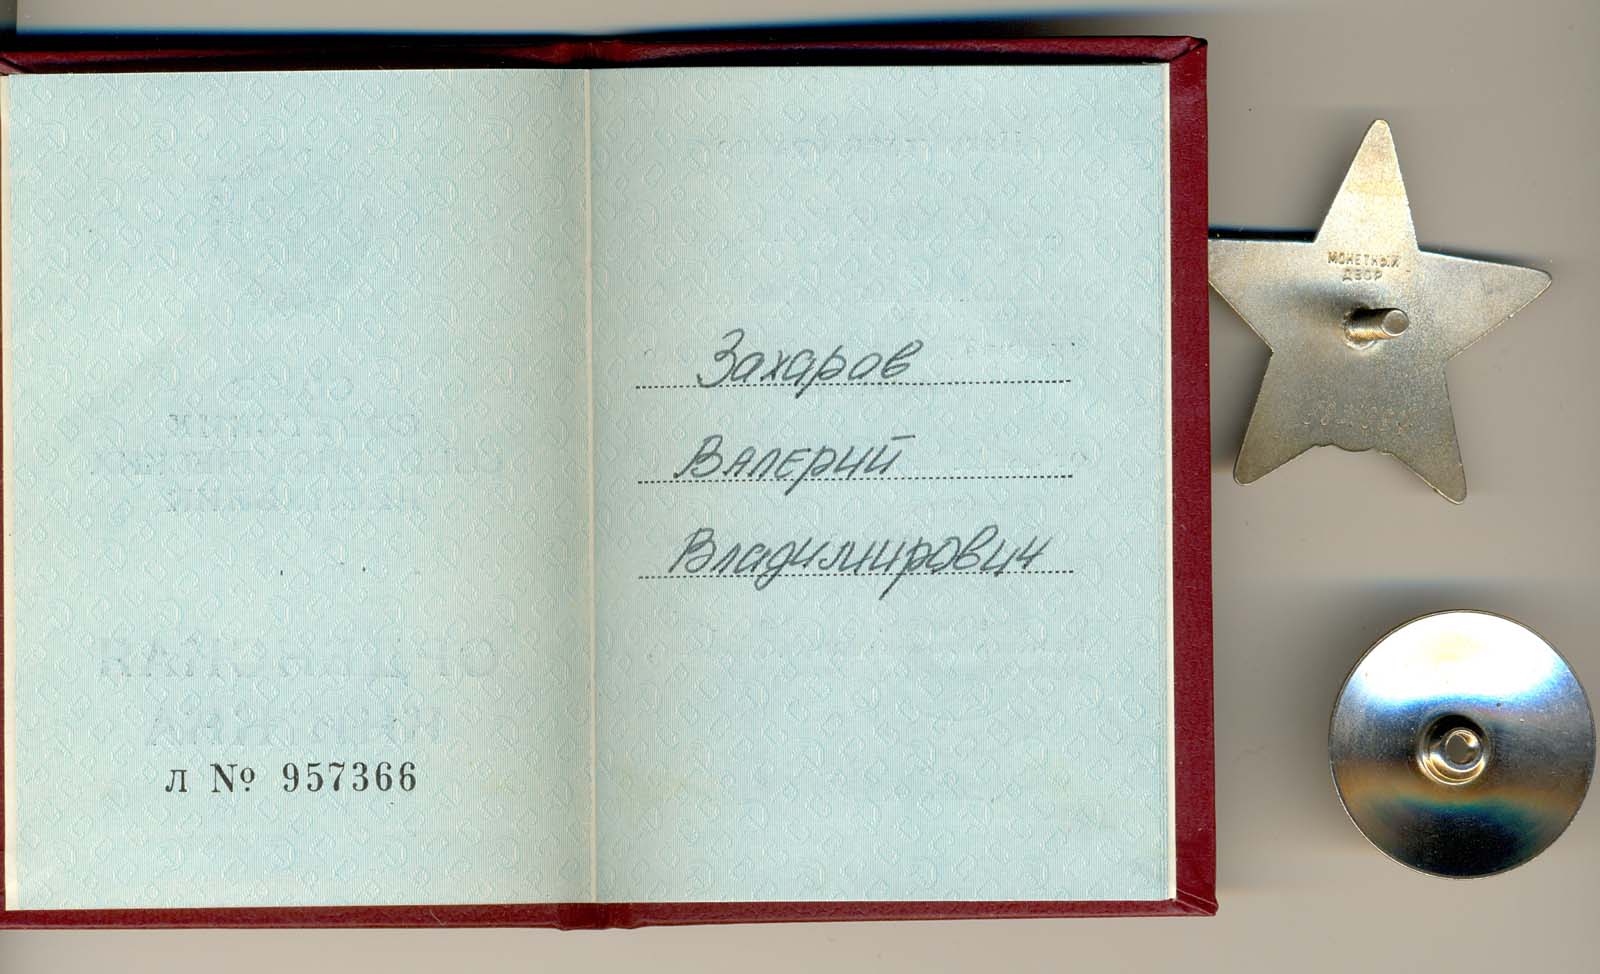 л № 957366
Захаров
Валерий
Владимирович
МОНЕТНЫЙ
ДВОР